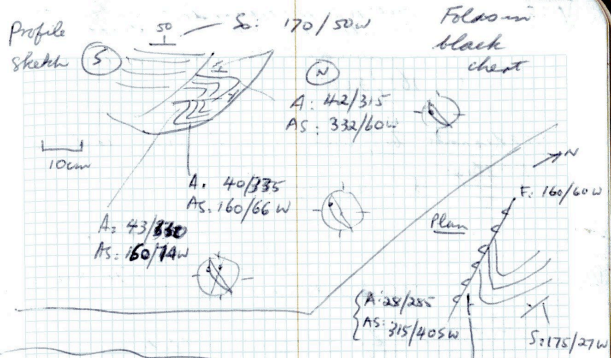 Profile
sketch
S
50
So: 170/50W
Folds in
black
chert
N
A: 42/315
AS: 332/60W
10cm
A: 40/335
AS: 160/66 W
A: 43/
AS: 160/74W
N
F: 160/60W
Plan
A: 28/285
AS: 315/40SW
S: 175/27W